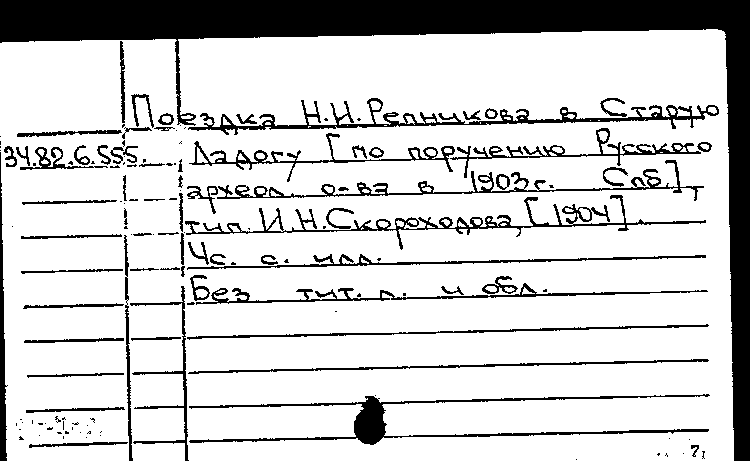 Поездка Н.И.Репникова в Старую
34.82.6.555. Ладогу [по поручению Русского
археол. о-ва в 1903г. Спб.],
тип. И.Н.Скороходова, [1904].
4с. с. илл.
Без тит. л. и обл.